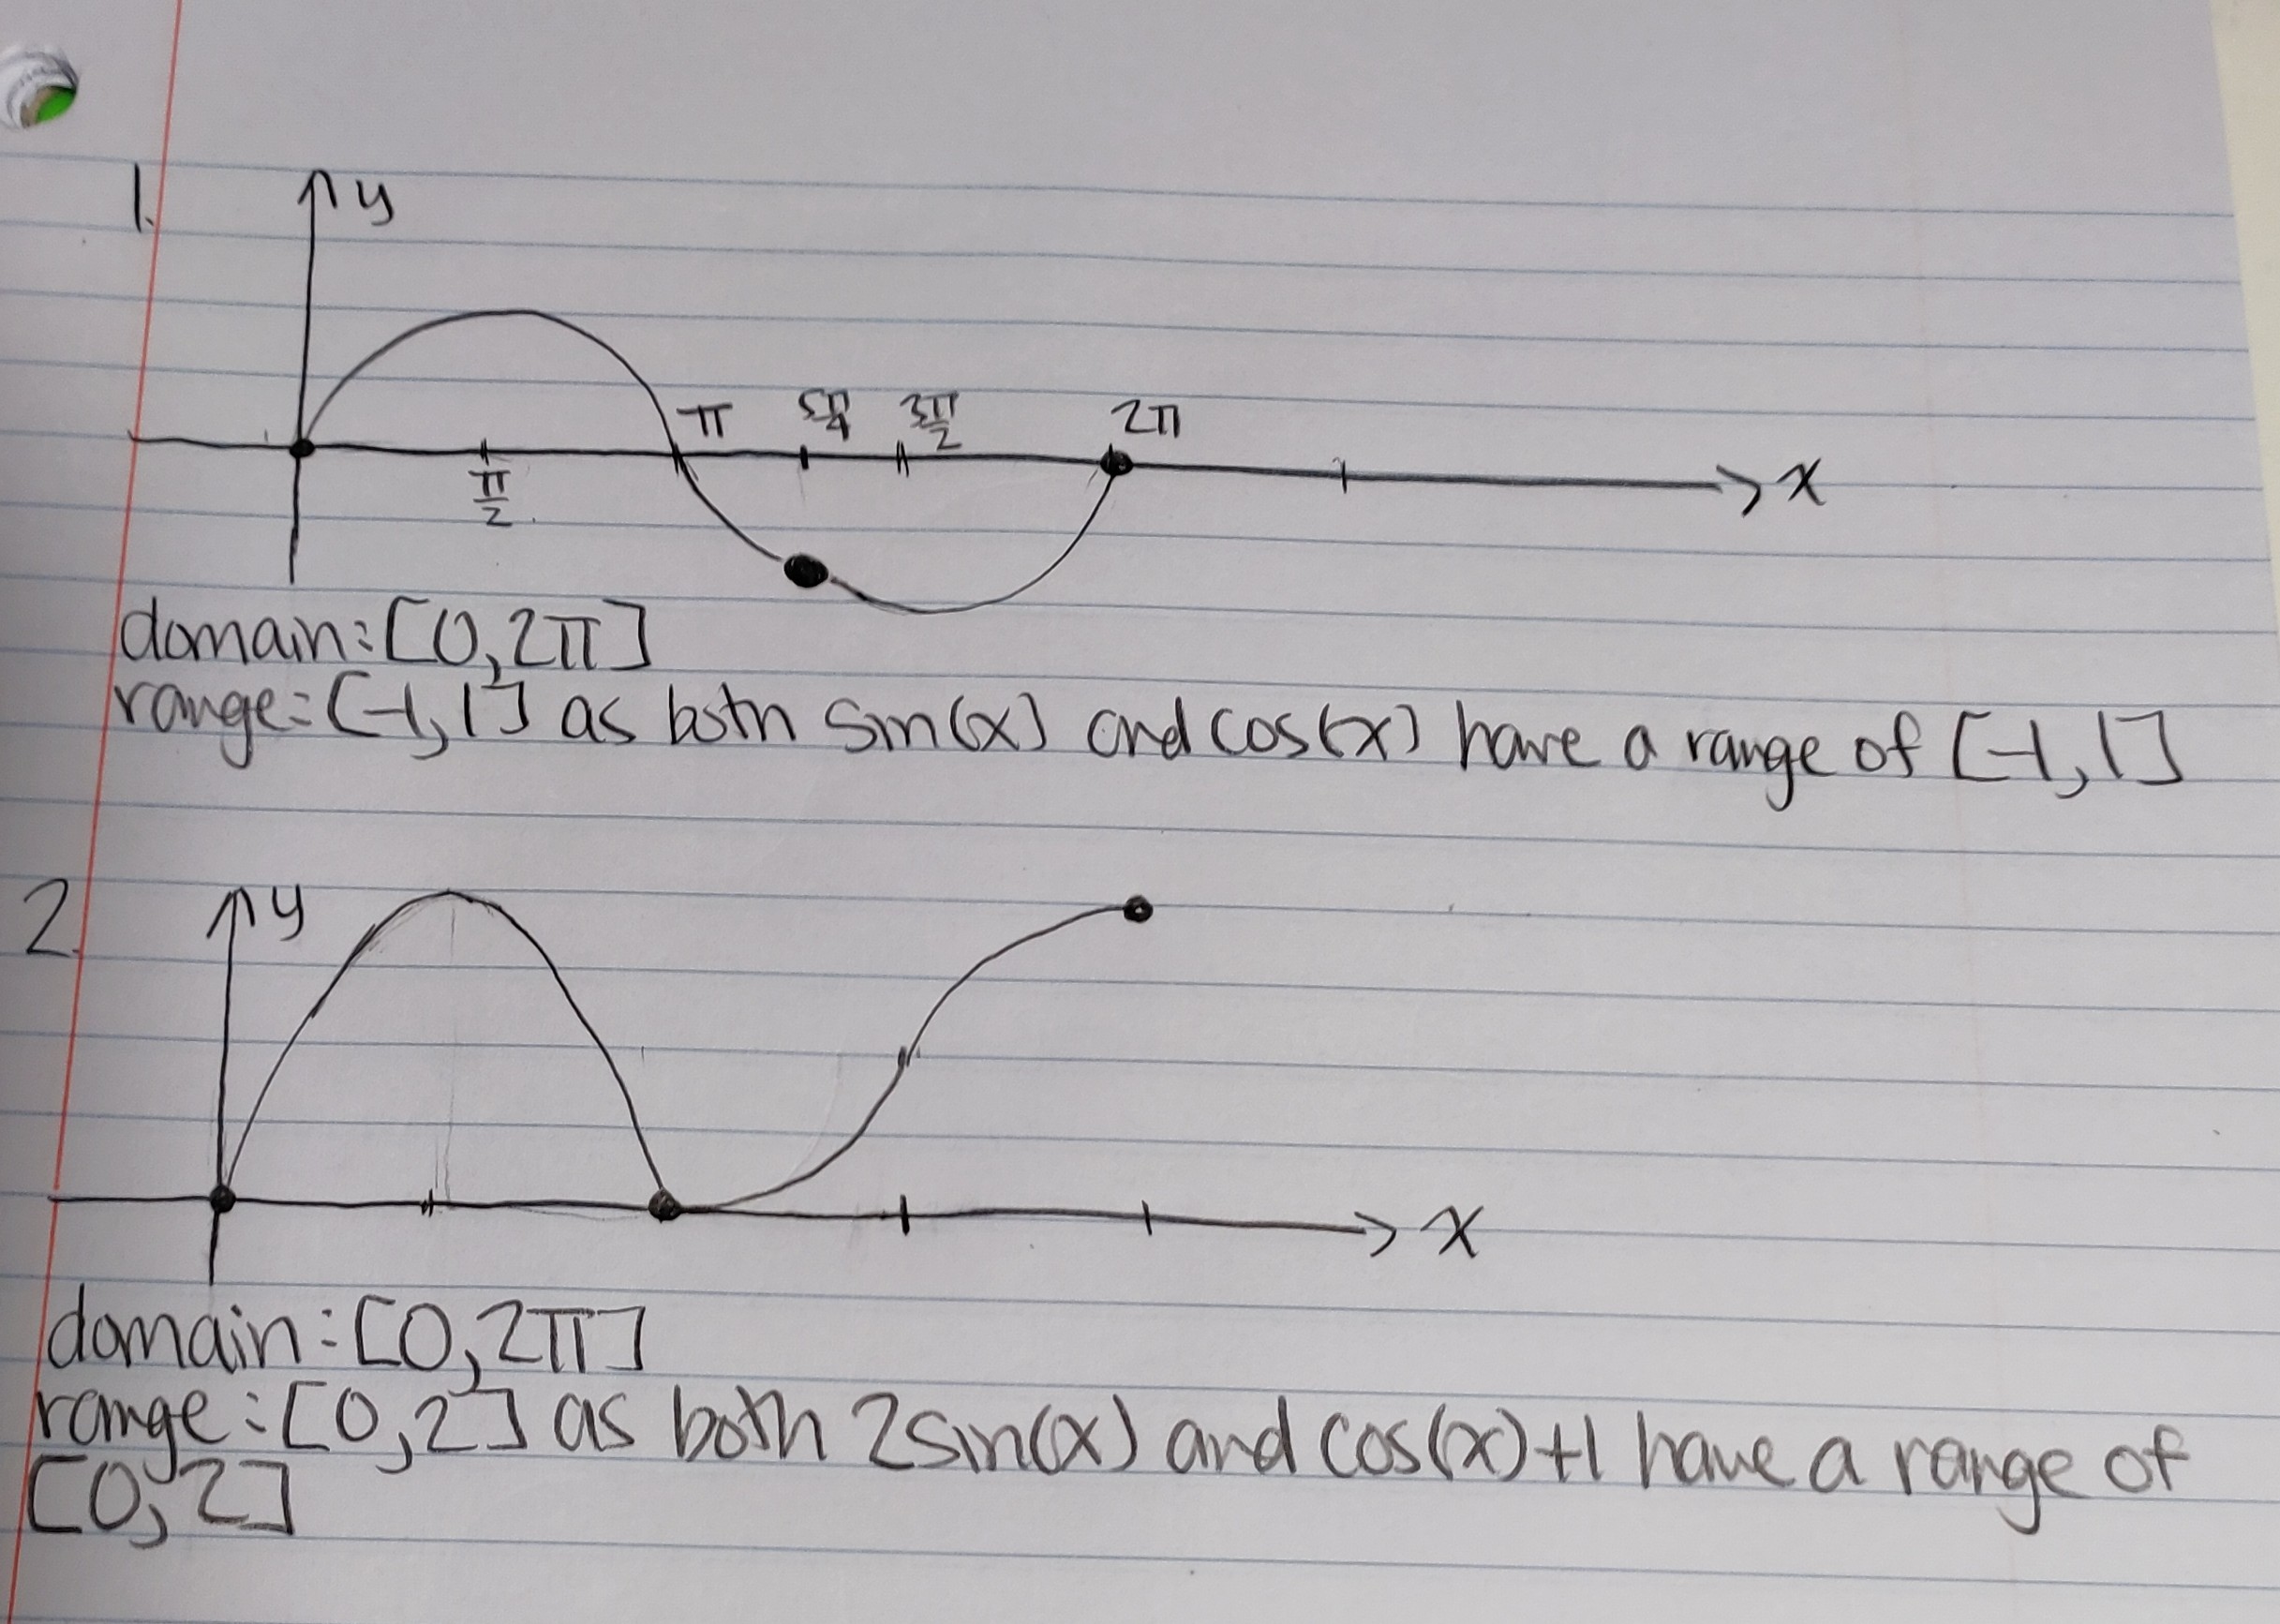 1.
y
π 5π/4 3π/2 2π
π/2
x
domain:[0,2π]
range:[-1,1] as both sin(x) and cos(x) have a range of [-1,1]
2.
y
x
domain:[0,2π]
range:[0,2] as both 2sin(x) and cos(x)+1 have a range of
[0,2]